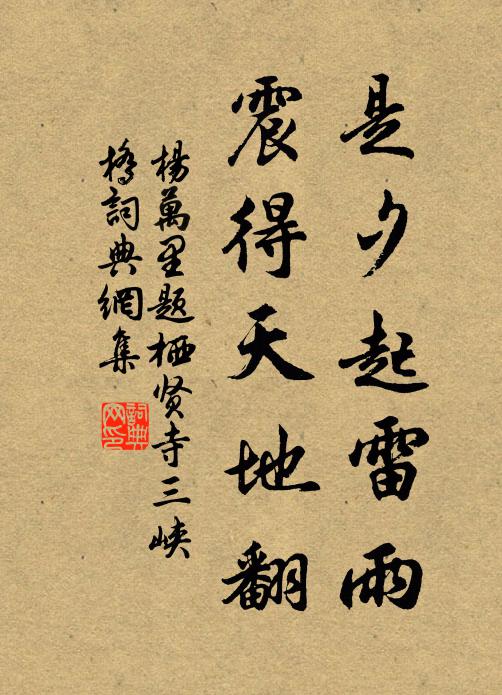 是夕起雷雨
震得天地翻
楊萬里题栖贤寺三峽
橋詞典網集
詞典
网印